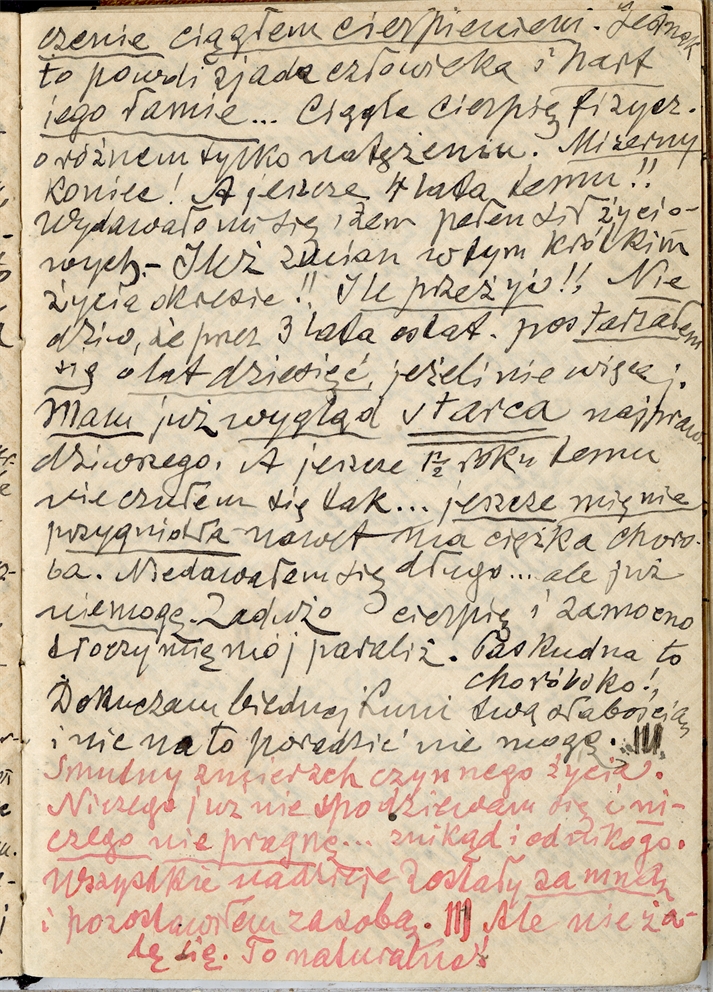 czenie ciągłem cierpieniem. Jednak
to powoli zjada człowieka i hart
jego łamie... Ciągle cierpię fizycz.
o różnem tylko natężeniu. Mizerny
koniec! A jeszcze 4 lata temu!!
Wydawało mi się, żem pełen sił życio-
wych.- Ileż zmian w tym krótkim
życia okresie!! Ile przeżyć!! Nie
dziw, że przez 3 lata ostat. postarzałem
się o lat dziesięć, jeżeli nie więcej.
Mam już wygląd starca najpraw-
dziwszego. A jeszcze 1½ roku temu
nie czułem się tak... jeszcze mię nie
przygniotła nawet ma ciężka choro-
ba. Niedawałem się długo... ale już
niemogę. Zadużo cierpię i zamocno
tłoczy mię mój paraliż. Paskudna to
choróbsko!,
Dokuczam biednej Luni swą słabością
i nic na to poradzić nie mogę.
Smutny zmierzch czynnego życia.
Niczego już nie spodziewam się i ni-
czego nie pragnę... znikąd i od nikogo.
Wszystkie nadzieje zostały za mną
i pozostawiłem za sobą. Ale nie ża-
lę się. To naturalne!